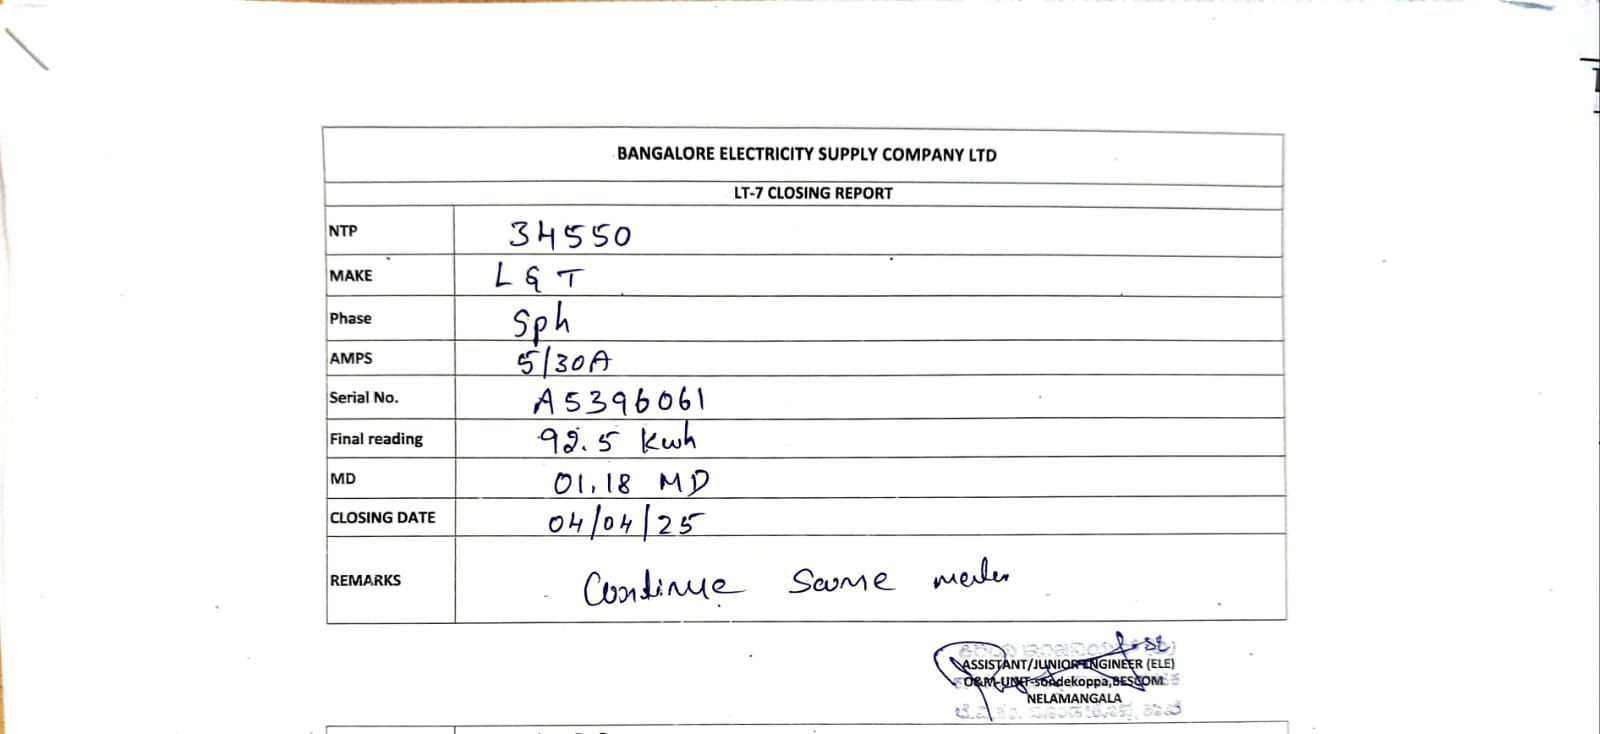 BANGALORE ELECTRICITY SUPPLY COMPANY LTD
LT-7 CLOSING REPORT
NTP 34550
MAKE L & T
Phase Sph
AMPS 5/30A
Serial No. A5396061
Final reading 92.5 Kwh
MD 01.18 MD
CLOSING DATE 04/04/25
REMARKS Continue Same meter
ASSISTANT/JUNIOR ENGINEER (ELE)
O&M-UNIT-sondekoppa,BESCOM
NELAMANGALA